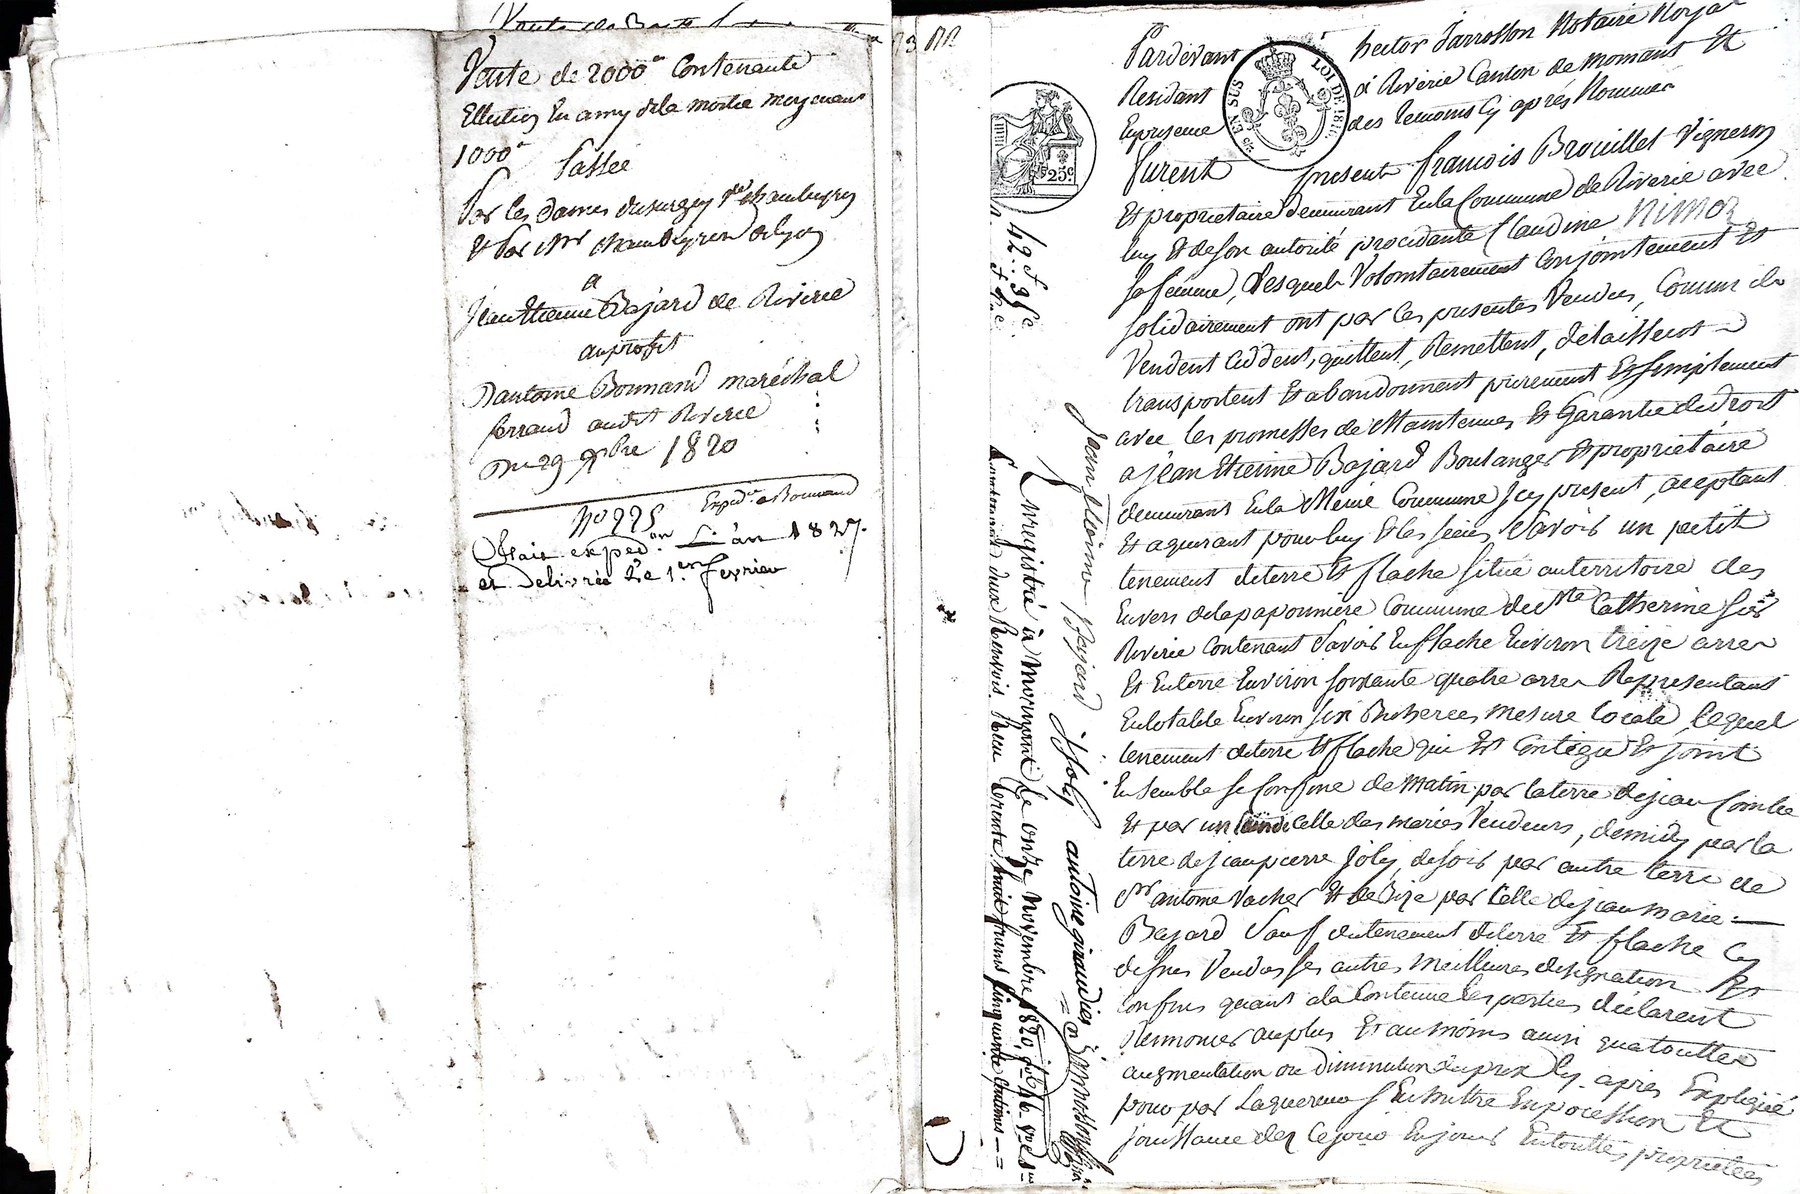 Vente de 2000 Contenante
Ellection En amy de la moitié moyenant
1000
Passée
Par les dames
& Par Mr
a
Jean Etienne Bajard de Riverie
au profit
D'antoine Bonnand maréchal
ferrand audit Riverie
Du 29 9bre 1820
Expédn. a Bonnand
No 225
Fait expedon. L'an 1827.
et Delivrée Le 1er fevrier
Pardevant hector Jarrosson Notaire Royal
Residant a Riverie Canton de Mornant Et
En presence des temoins Cy après Nommés
EN SUS LOI DE 1816
25c.
furent present francois Brouillet Vigneron
Et proprietaire demeurant En la Commune de Riverie avéc
luy Et de son autorité procedante Claudine Nimoz
Sa femme, Lesquels Volontairement Conjointement Et
Solidairement ont par Ces presentes Vendus, Comme ils
Vendent Ceddent, quittent, Remettent, delaissent
transportent Et abandonnent purement Et Simplement
avec les promesses de Maintenues Et Garantie de Droit
a jean Etienne Bajard Boulanger Et proprietaire
demeurant En la Même Commune Icy present, aceptant
Et aquerant pour luy Et les siens, Savoir un petit
tenement de terre Et flache Situé au territoire des
Envers de la paponnière Commune de Ste Catherine Sur
Riverie Contenant Savoir En flache Environ treize arres
Et En terre Environ Soixante quatre arres Representant
En totalité Environ Six Bicherées mesure Locale, Lequel
tenement de terre Et flache qui Est Contigu Et joint
Ensemble Se Confine de Matin par la terre de jean Combe
Et par un Celle des mariés Vendeurs, de midy par la
terre de jean pierre Joly, de Soir par autre terre de
Sr antoine Vacher Et de Bize par Celle de jean marie
Bajard Sauf du tenement de terre Et flache Cy
dessus Vendus Ses autres Meilleures designation Et
Confins quant a la Contenue les parties déclarent
Renoncer au plus Et au moins ainsi qua touttes
augmentation ou Diminution du prix Cy après Expliqué
pour par Laquereur S'En mettre En possession Et
jouissance des Ce jour En jouir En touttes proprietées
jean etienne Bajard j joly antoine giraudier
Jarrosson
42f 35c.
Enregistré à Mornant le onze Novembre 1820, fol. 46. Vo
Contenant deux Renvois. Reçu Quarente huit francs Cinquante Centimes